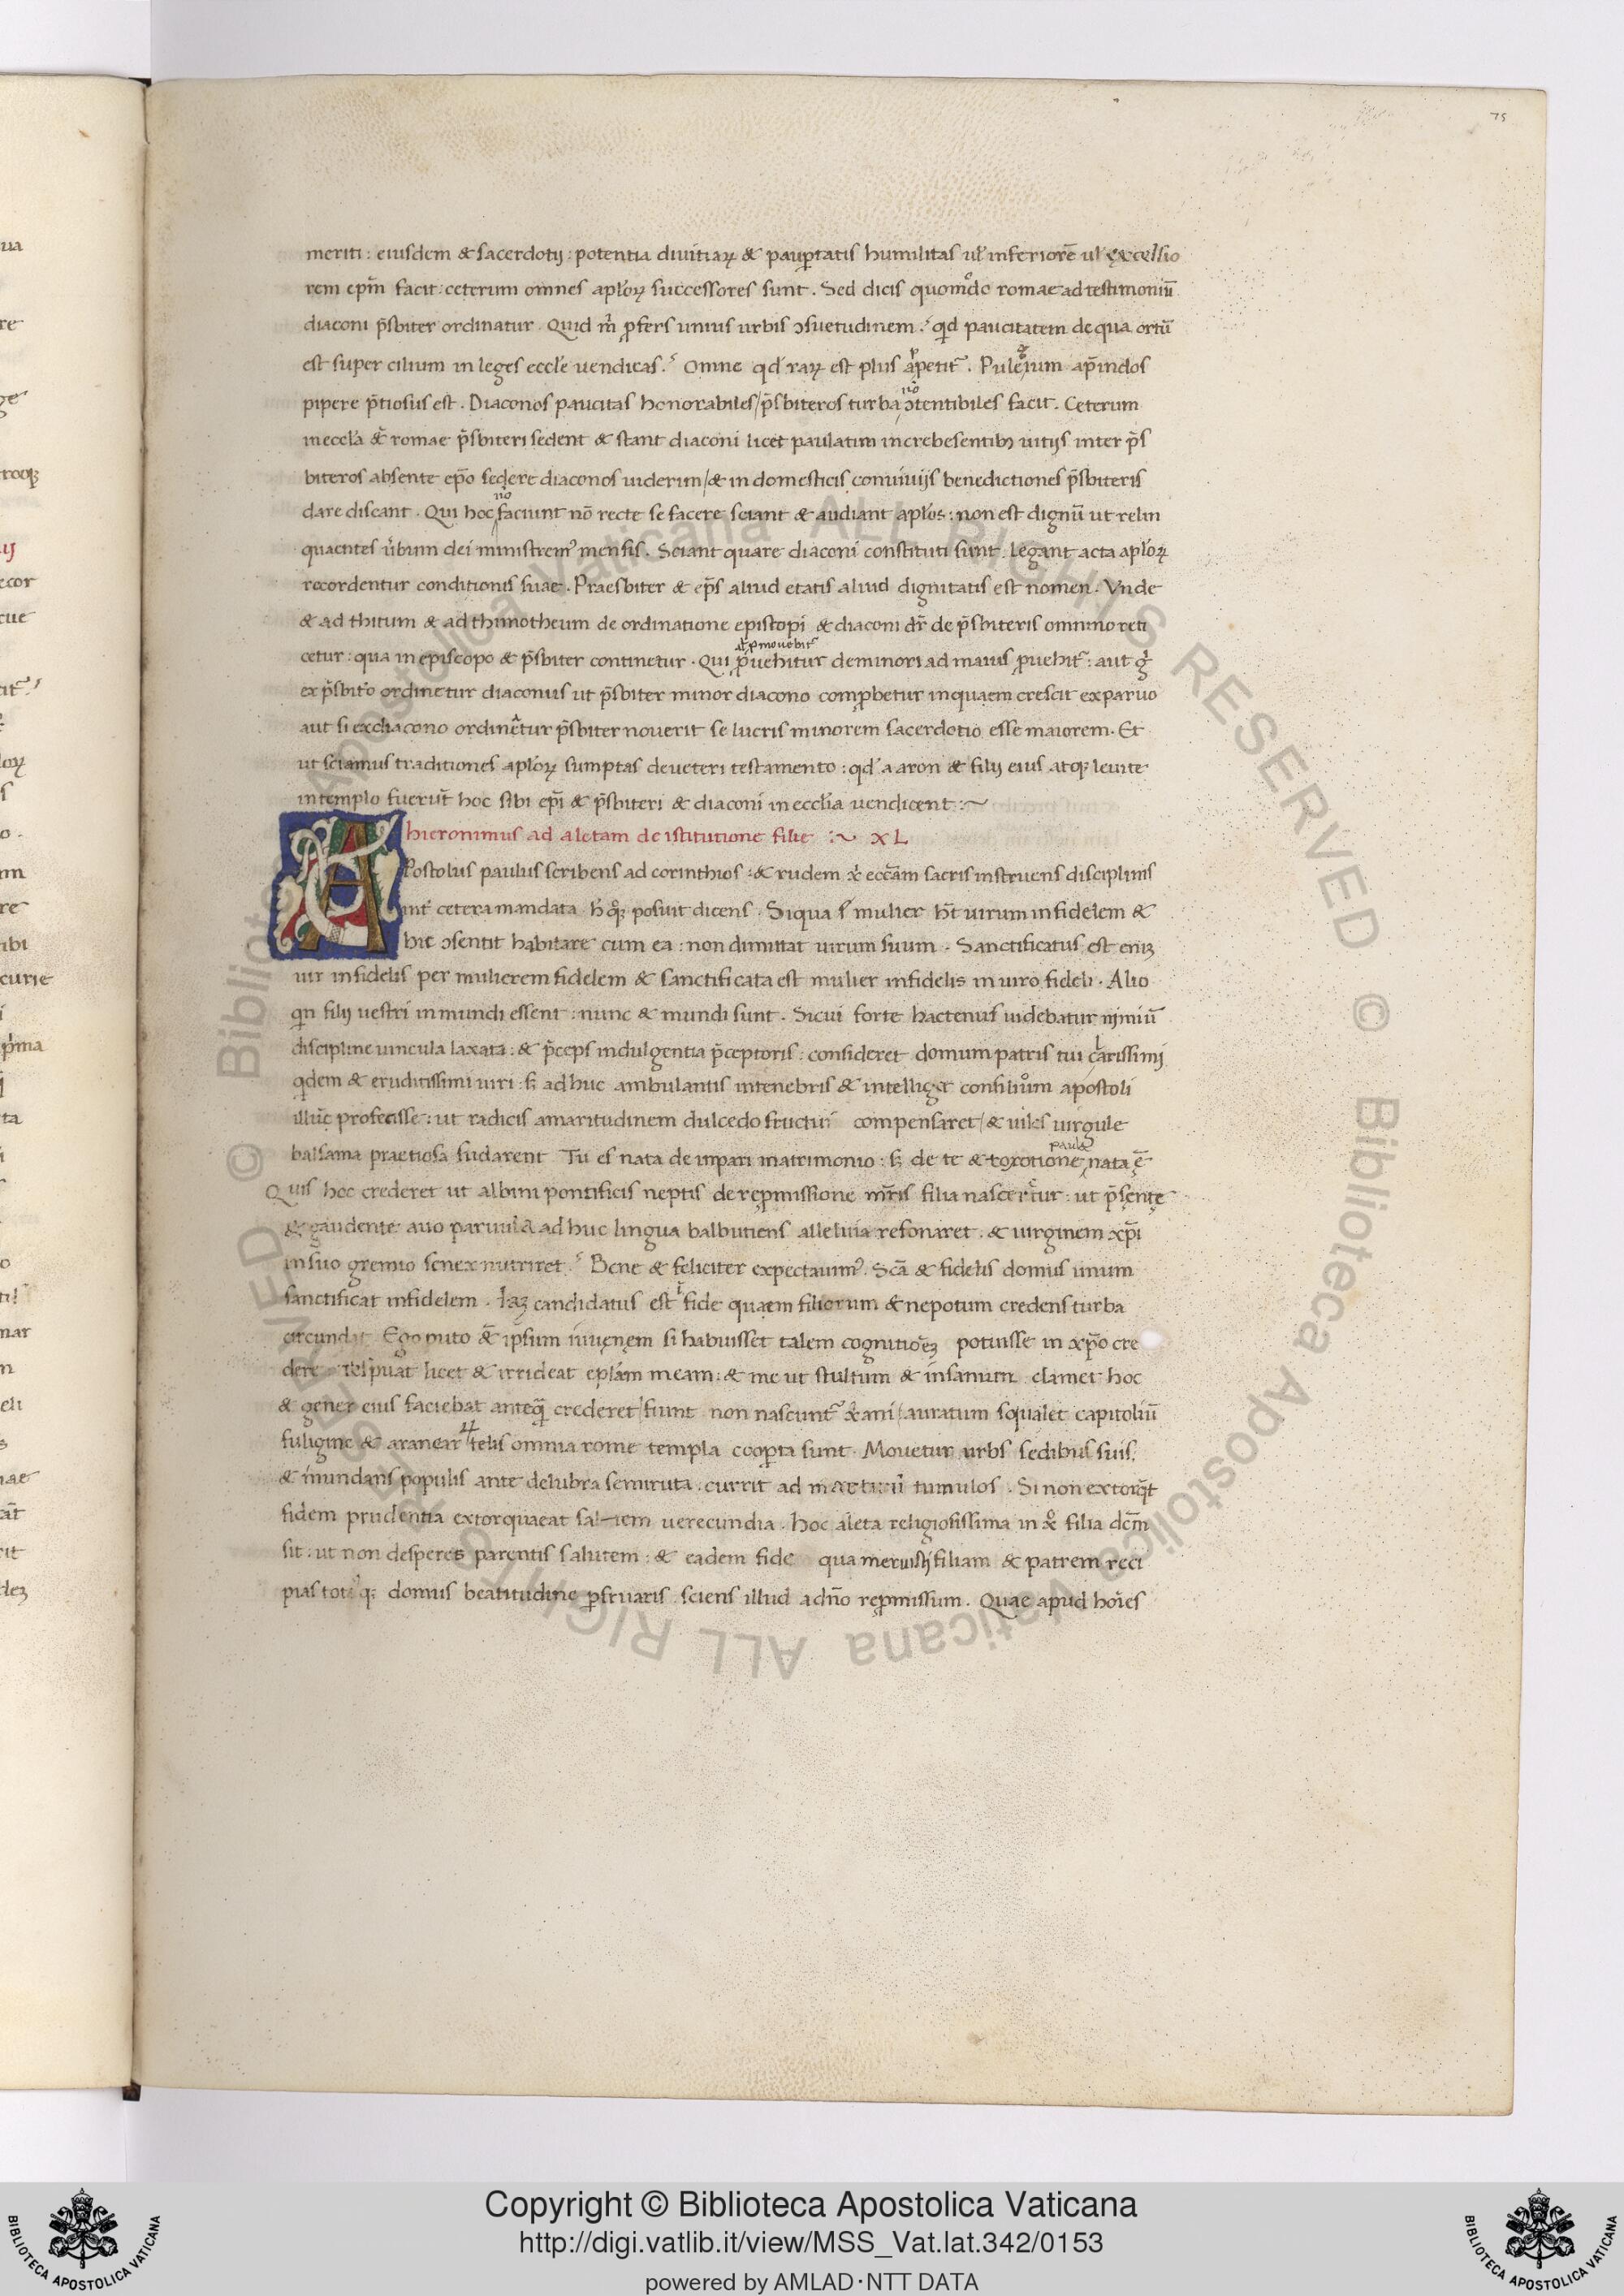 75
meriti : eiusdem & sacerdotij : potentia diuitiaꝝ & paup̱tatis humilitas ul̓ inferiorē ul̓ excelsio
rem ep̄m facit : ceterum omnes ap̓loꝝ successores sunt . Sed dicis quomͦdo romae ad testimoniū
diaconi p̄sbiter ordinatur . Quid m̓ pfers unius urbis ɔsuetudinem ? qd paucitatem de qua ortū
est super cilium in leges eccl̓e uendicas ? Omne qd̓ raꝝ est plus apetit᷑ . Puleium ap̄ indos
pipere p̄tiosius est . Diaconos paucitas honorabiles / p̄sbiteros turba ɔtentibiles facit . Ceterum
in eccl̓a & romae p̄sbiteri sedent & stant diaconi licet paulatim increbesentibꝫ uitijs inter p̄s
biteros absente ep̄o sedere diaconos uiderim / & in domesticis conuiuijs benedictiones p̄sbiteris
no
dare discant . Qui hoc faciunt nō recte se facere sciant & audiant ap̓los : non est dignū ut relin
quaentes u̓bum dei ministrem᷒ mensis . Sciant quare diaconi constituti sunt . Legant acta ap̓loꝝ
recordentur conditionis suae . Praesbiter & ep̄s aliud etatis aliud dignitatis est nomen . Vnde
& ad thitum & ad thimotheum de ordinatione episcopi & diaconi dr̄ de p̄sbiteris omnino reti
cetur : quia in episcopo & p̄sbiter continetur . Qui ꝓuehitur de minori ad maius ꝓuehit᷑ : aut g̓
ex p̄sbit̓o ordinetur diaconus ut p̄sbiter minor diacono comꝓbetur in quaem crescit ex paruo
aut si ex diacono ordinetur p̄sbiter nouerit se lucris minorem sacerdotio esse maiorem . Et
ut sciamus traditiones ap̓loꝝ sumptas de ueteri testamento : qd̓ aaron & filij eius atqꝫ leuite
in templo fuerūt hoc sibi ep̄i & p̄sbiteri & diaconi in eccl̓ia uendicent :~
hieronimus ad aletam de istitutione filie :~ XL
APostolus paulus scribens ad corinthios : & rudem xp̄i eccl̄am sacris instruens disciplinis
int̓ cetera mandata h̓ qꝫ posuit dicens . Siqua mulier h̄t uirum infidelem &
hic ɔsentit habitare cum ea : non dimittat uirum suum . Sanctificatus est enīꝫ
uir infidelis per mulierem fidelem & sanctificata est mulier infidelis in uiro fideli . Alio
qn filij uestri in mundi essent : nunc & mundi sunt . Sicui forte hactenus uidebatur nimiū
discipline uincula laxata : & p̄ceps indulgentia p̄ceptoris : consideret domum patris tui clarissimi
qdem & eruditissimi uiri : s̄ ad huc ambulantis in tenebris & intelliget consilium apostoli
illuc profecisse : ut radicis amaritudinem dulcedo fructui compensaret / & uiles uirgule
paula
balsama praetiosa sudarent Tu es nata de inpari matrimonio : s̄ de te & toxotione nata ē
Quis hoc crederet ut albini pontificis neptis de reꝓmissione mr̄is filia nasceretur : ut p̄sente
& gaudente auo paruula ad huc lingua balbutiens alleluia resonaret . & uirginem xp̄i
in suo gremio senex nutriret ? Bene & feliciter expectauim᷒ . Scā & fidelis domus unum
sanctificat infidelem . Iaꝫ candidatus est fide quaem filiorum & nepotum credens turba
circundat Ego puto & ipsum iuuenem si habuisset talem cognitioeꝫ potuisse in xp̄o cre
dere . respuat licet & irrideat epl̓am meam : & me ut stultum & insanum clamet hoc
& gener eius faciebat anteq̄ crederet / fiunt non nascunt᷑ xp̄ani / auratum squalet capitoliū
fuligine & aranearꝝ telis omnia rome templa coop̱ta sunt . Mouetur urbs sedibus suis
& inundans populis ante delubra semiruta . currit ad martirū tumulos . Si non extorq̄t
fidem prudentia extorquaeat saltem uerecundia . hoc aleta religiosissima in xp̄o filia dc̄m
sit : ut non desperes parentis salutem : & eadem fide qua meruisti filiam & patrem reci
pias totiꝰqꝫ domus beatitudine p̱fruaris . sciens illud a dn̄o reꝓmissum . Quae apud hoīes
Copyright © Biblioteca Apostolica Vaticana
http://digi.vatlib.it/view/MSS_Vat.lat.342/0153
powered by AMLAD·NTT DATA